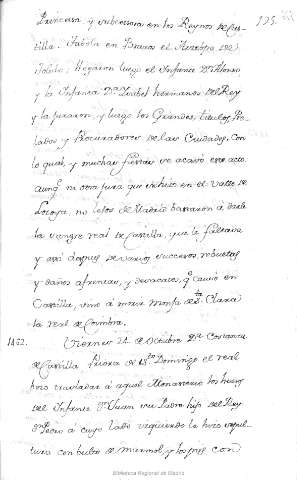 135.
Princesa y subcesora en los Reynos de Cas-
tilla. Tabola en Brazos el Arzobpo de
Toledo; llegaron luego el Infante Dn. Alonso
y la Infanta Da. Isabel hermanos del Rey
y la juraron, y luego los Grandes, titulos, Pre-
lados y Procuradores de las Ciudades, con
lo qual, y muchas fiestas se acavó este acto
aunq.e ni otra jura que se hizo en el valle de
Lozoya no lejos de Madrid bastaron á darle
la sangre real de Castilla, que le faltava
y asi despues de varios succesos, rebueltas
y daños afrentas, y desacatos, q.e causó en
Castilla, vino á morir Monja de S.ta Clara
la real de Coimbra.
1462. Viernes 24 de Octubre Da. Costanza
de Castilla Priora de S.to Domingo el real
hizo trasladar á aquel Monasterio los huesos
del Infante Dn. Juan su Padre hijo del Rey
Dn. Pedro á cuyo lado siguiendo le hizo sepul-
tura con bulto de marmol, y los pies con
Biblioteca Regional de Madrid